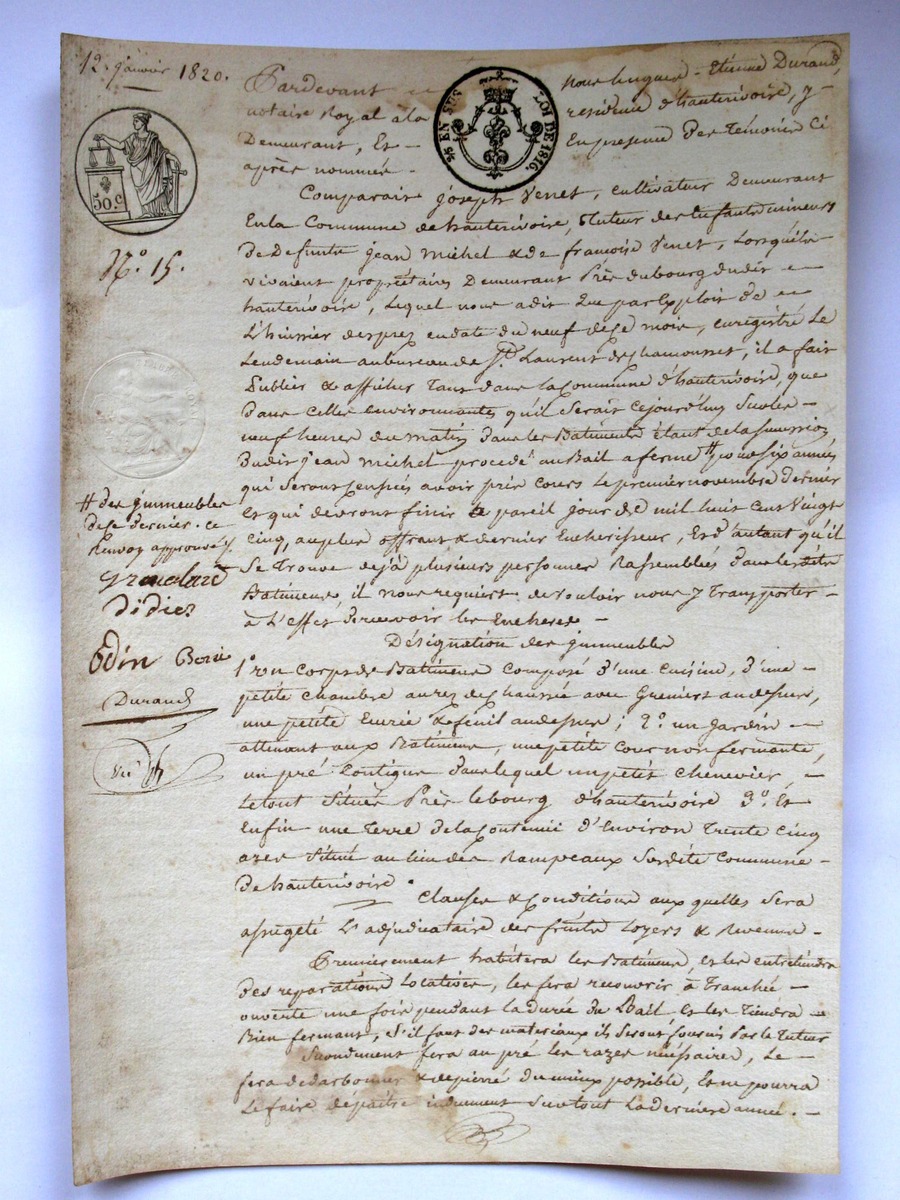 12 janvier 1820.
50.c
5/6 EN SUS LOI DE 1816.
N.o 15.
Pardevant nous soussigné Etienne Durand,
notaire Royal à la résidence d'hauterivoire, y
Demeurant, Et En présence Des Témoins Ci
après nommés.
Comparait joseph Venet, cultivateur Demeurant
En la Commune de hauterivoire, tuteur des Enfants mineurs
De Defunts jean Michel & de françoise Venet, Lorsqu'ils
vivaient propriétaires Demeurant Près du bourg dudit
hauterivoire, Lequel nous a dit Que par Exploit De
L'huissier desprez en date du neuf de Ce mois, enregistré Le
Lendemain au bureau de St. Laurent de chamousset, il a fait
Publier & afficher Tant dans la Commune d'hauterivoire, que
Dans Celles environnantes qu'il Serait Cejourd'huy Sur les
neuf heures du matin Dans les Batiments étant de la Succession
Dudit jean Michel procédé au Bail a ferme # pour six années
qui Seront Censées avoir pris Cours Le premier novembre Dernier
Et qui devront finir à pareil jour de mil huit Cent Vingt
Cinq, au plus offrant & dernier Encherisseur, Et D'autant qu'il
Se Trouve déjà plusieurs personnes Rassemblées Dans les dits
Batiments, il nous requiert de vouloir nous y Transporter
à L'effet De recevoir les Encheres
# des jmmeubles
de Ce Dernier. ce
Renvoy approuvé
didier
Odin
Durand
Désignation des jmmeubles
1o un Corps de Batiments Composé D'une Cuisine, D'une
petite Chambre au rez de chaussée avec Greniers au dessus,
une petite Ecurie & fenil au dessus; 2o. un Jardin
attenant aux Batiments, une petite Cour non fermante,
un pré Contigu Dans lequel un petit Chenevier,
Le tout Situés Près le bourg d'hauterivoire 3o. Et
Enfin une Terre de la Contenue D'Environ Trente Cinq
ares Située au lieu des Rampeaux Susdite Commune
De hauterivoire
Clauses & Conditions aux quelles Sera
assujeté L'adjudicataire des fruits Loyers & Revenus
Premierement habitera les Batiments, et les entretiendra
des reparations Locatives, les fera recouvrir à Tranchée
ouverte une fois pendant la durée du Bail et les Tiendra
Bien fermant, S'il faut des materiaux ils Seront fournis Par le Tuteur
Secondement fera au pré les razes nécessaires, Le
fera dedarbonner & depierré Du mieux possible, Et ne pourra
Le faire dépaitre induement Sur tout La derniere année.